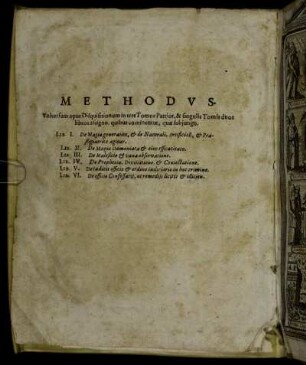 METHODVS.
Vniuersum opus Disquisitionum in tres Tomos Partior, & singulis Tomis duos
libros tribuo, quibus continentur, quæ subjungā.
LIB. I. De Magia generatim, & de Naturali, Artificiali, & Præ-
stigiatrice agitur.
LIB. II. De Magia Dæmoniaca & eius efficacitate.
LIB. III. De Maleficio & vana obseruatione.
LIB. IV. De Prophetia, Diuinatione, & Coniectatione.
LIB. V. De Iudicis officio & ordine iudiciario in hoc crimine.
LIB. VI. De officio Confessarij, ac remedijs licitis & illicitis.